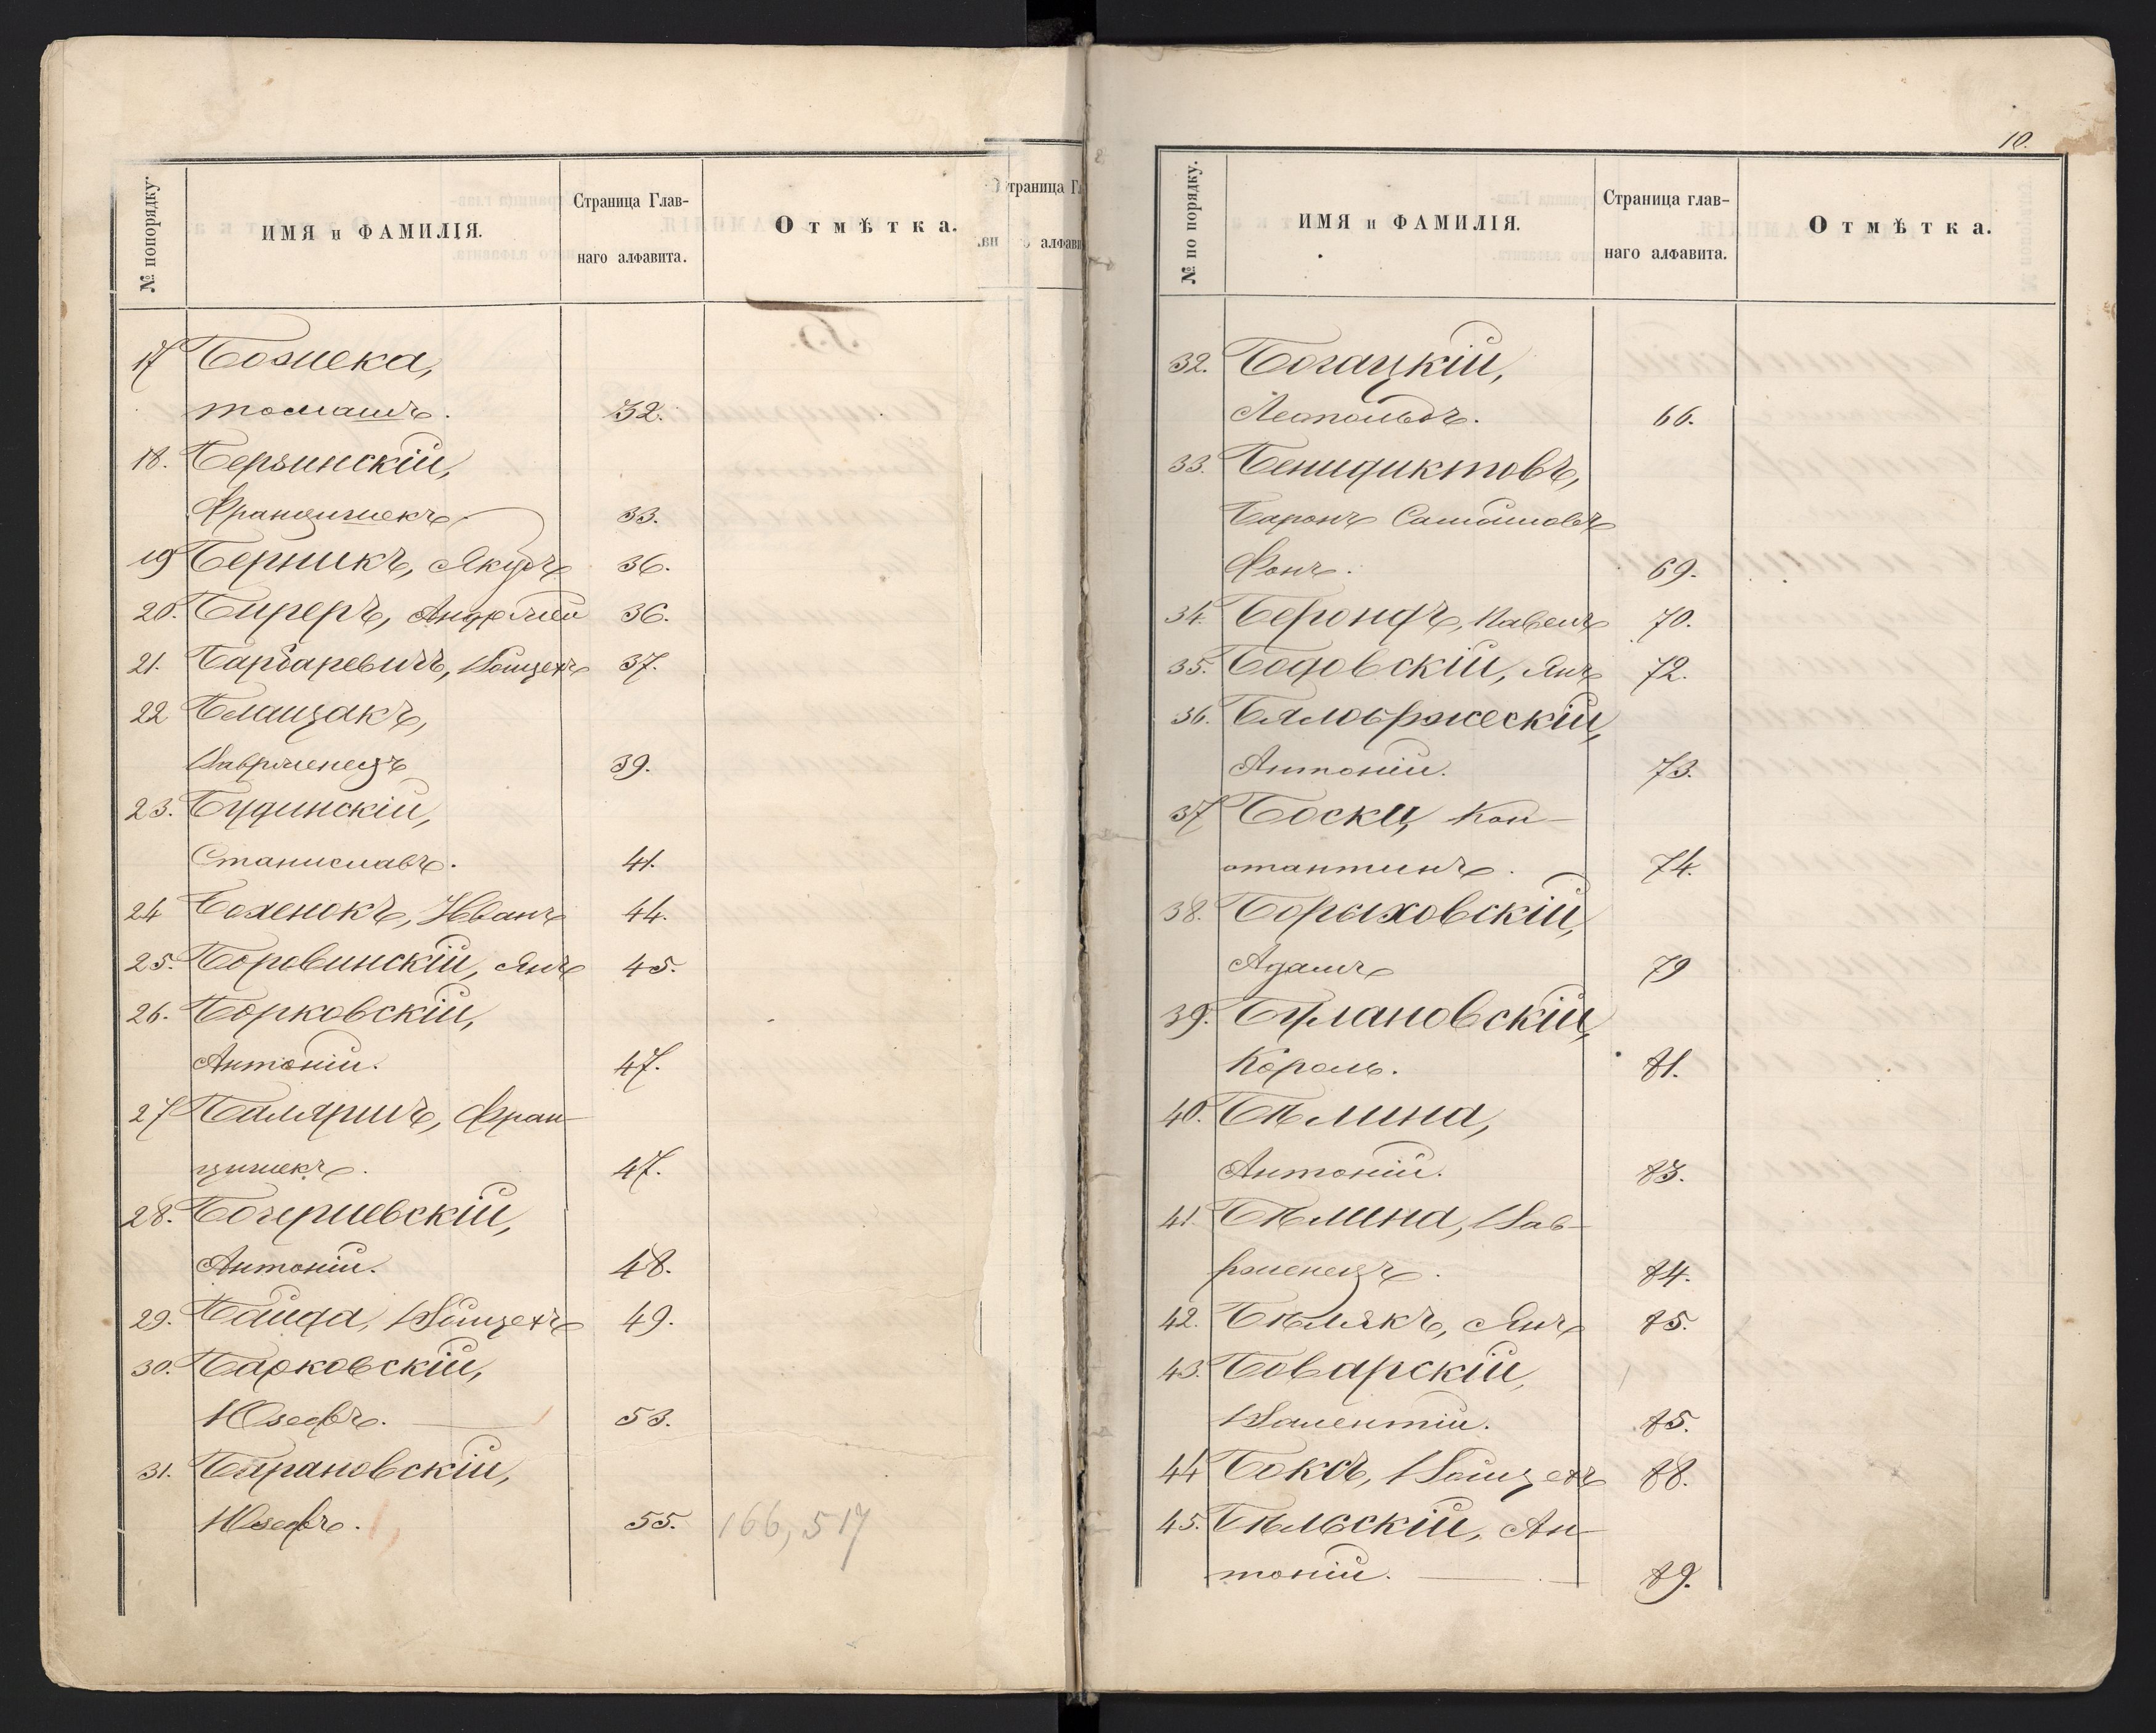 № попорядку.
ИМЯ и ФАМИЛІЯ.
Страница Глав-
наго алфавита.
Отмѣтка.
17 Бозиека,
Томашъ. 32.
18. Берзинскій,
Францишекъ 33.
19 Берникъ, Якубъ 36.
20. Биреръ, Андржей 36.
21. Барбаревичъ, Войцехъ 37.
22 Блащакъ,
Ваврженецъ 39.
23. Будинскій,
Станиславъ. 41.
24 Боженокъ, Иванъ 44.
25. Боровинскій, Янъ 45.
26. Борковскій,
Антоній. 47.
27 Фран-
цишекъ. 47.
28. Бочершевскій,
Антоній. 48.
29. Байда, Войцехъ 49.
30. Барковскій,
Юзефъ. 53.
31. Барановскій,
Юзефъ. 55. 166, 517
траница Г
алфави
10.
№ по порядку.
ИМЯ и ФАМИЛІЯ.
Страница глав-
наго алфавита.
Отмѣтка.
32. Богацкій,
Леопольдъ. 66.
33. Бенидиктовъ,
Баронъ
Фонъ. 69.
34. Берондъ, Павелъ 70.
35. Бодовскій, Янъ 72.
36. Бялобржескій,
Антоній. 73.
37 Боски, Кон-
стантинъ. 74.
38. Борыховскій,
Адамъ 79
39. Буллановскій,
Король. 81.
40. Бѣлина,
Антоній. 83.
41. Бѣлина, Вав-
рженецъ. 84.
42. Бѣлякъ, Янъ 85.
43. Боварскій,
Валентій. 85.
44 Боксъ, Войцехъ 88.
45. Бѣльскій, Ан-
тоній. 89.